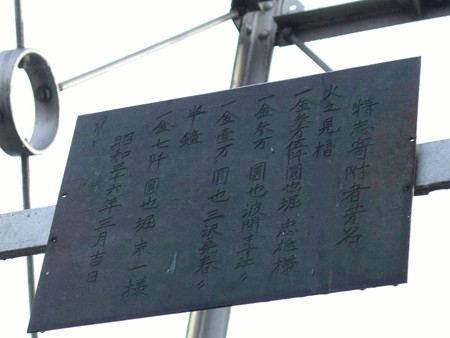 特志寄附者芳名
火之見梯
一金参万伍仟圓也堀 忠雄様
一金参万 圓也波間
一金壱万 圓也 三沢 春〃
半鐘
一金七阡 圓也堀 末一様
昭和三十六年三月吉日